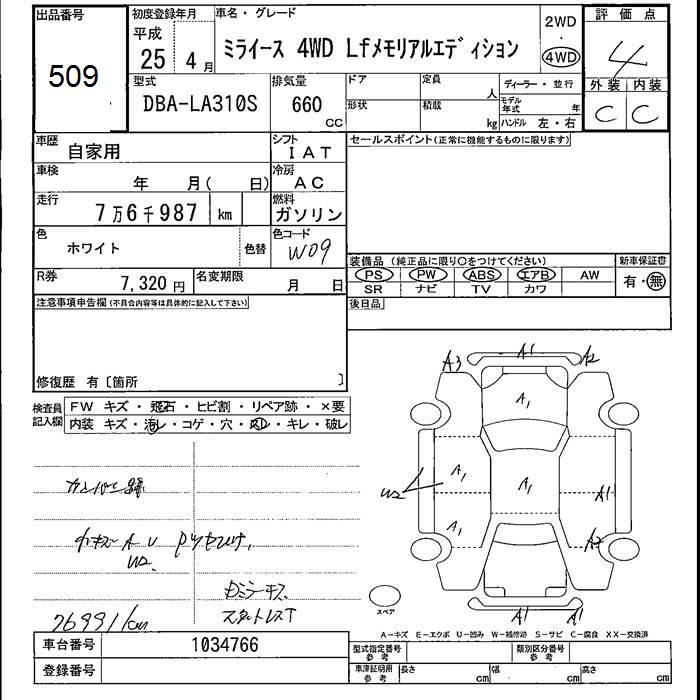 出品番号 509
初度登録年月 平成 25年 4月
車名・グレード ミライース 4WD Lfメモリアルエディション
2WD ・ 4WD
評価点 4
外装 内装
C C
型式 DBA-LA310S
排気量 660 CC
ドア 定員 人
形状 積載 kg
ディーラー・並行
モデル年式 年
ハンドル 左・右
車歴 自家用
シフト IAT
車検 年 月( 日)
冷房 AC
走行 7万6千987 km
燃料 ガソリン
色 ホワイト 色替
色コード W09
R券 7,320円
名変期限 月 日
セールスポイント(正常に機能するものに限ります)
装備品 (純正品に限り○をつけてください) 新車保証書
PS PW ABS エアB AW 有・無
SR ナビ TV カワ
後日品
注意事項申告欄(不具合内容等は具体的に記入して下さい)
修復歴 有〔箇所 〕
検査員記入欄
FW キズ・飛石・ヒビ割・リペア跡・×要
内装 キズ・汚レ・コゲ・穴・スレ・キレ・破レ
A3 A1 A2
A1
W2 A1 A1 A1
A1 A2
A1 A1
スペア
W2
76991km
A-キズ E-エクボ U-凹み W-補修跡 S-サビ C-腐食 XX-交換済
車台番号 1034766
登録番号
型式指定番号 参考
類別区分番号 参考
車庫証明用 参考 長さ cm 幅 cm 高さ cm